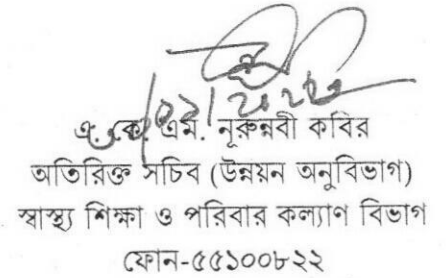 এ. কে. এম. নূরুন্নবী কবির
অতিরিক্ত সচিব (উন্নয়ন অনুবিভাগ)
স্বাস্থ্য শিক্ষা ও পরিবার কল্যাণ বিভাগ
ফোন-৫৫১০০৮২২